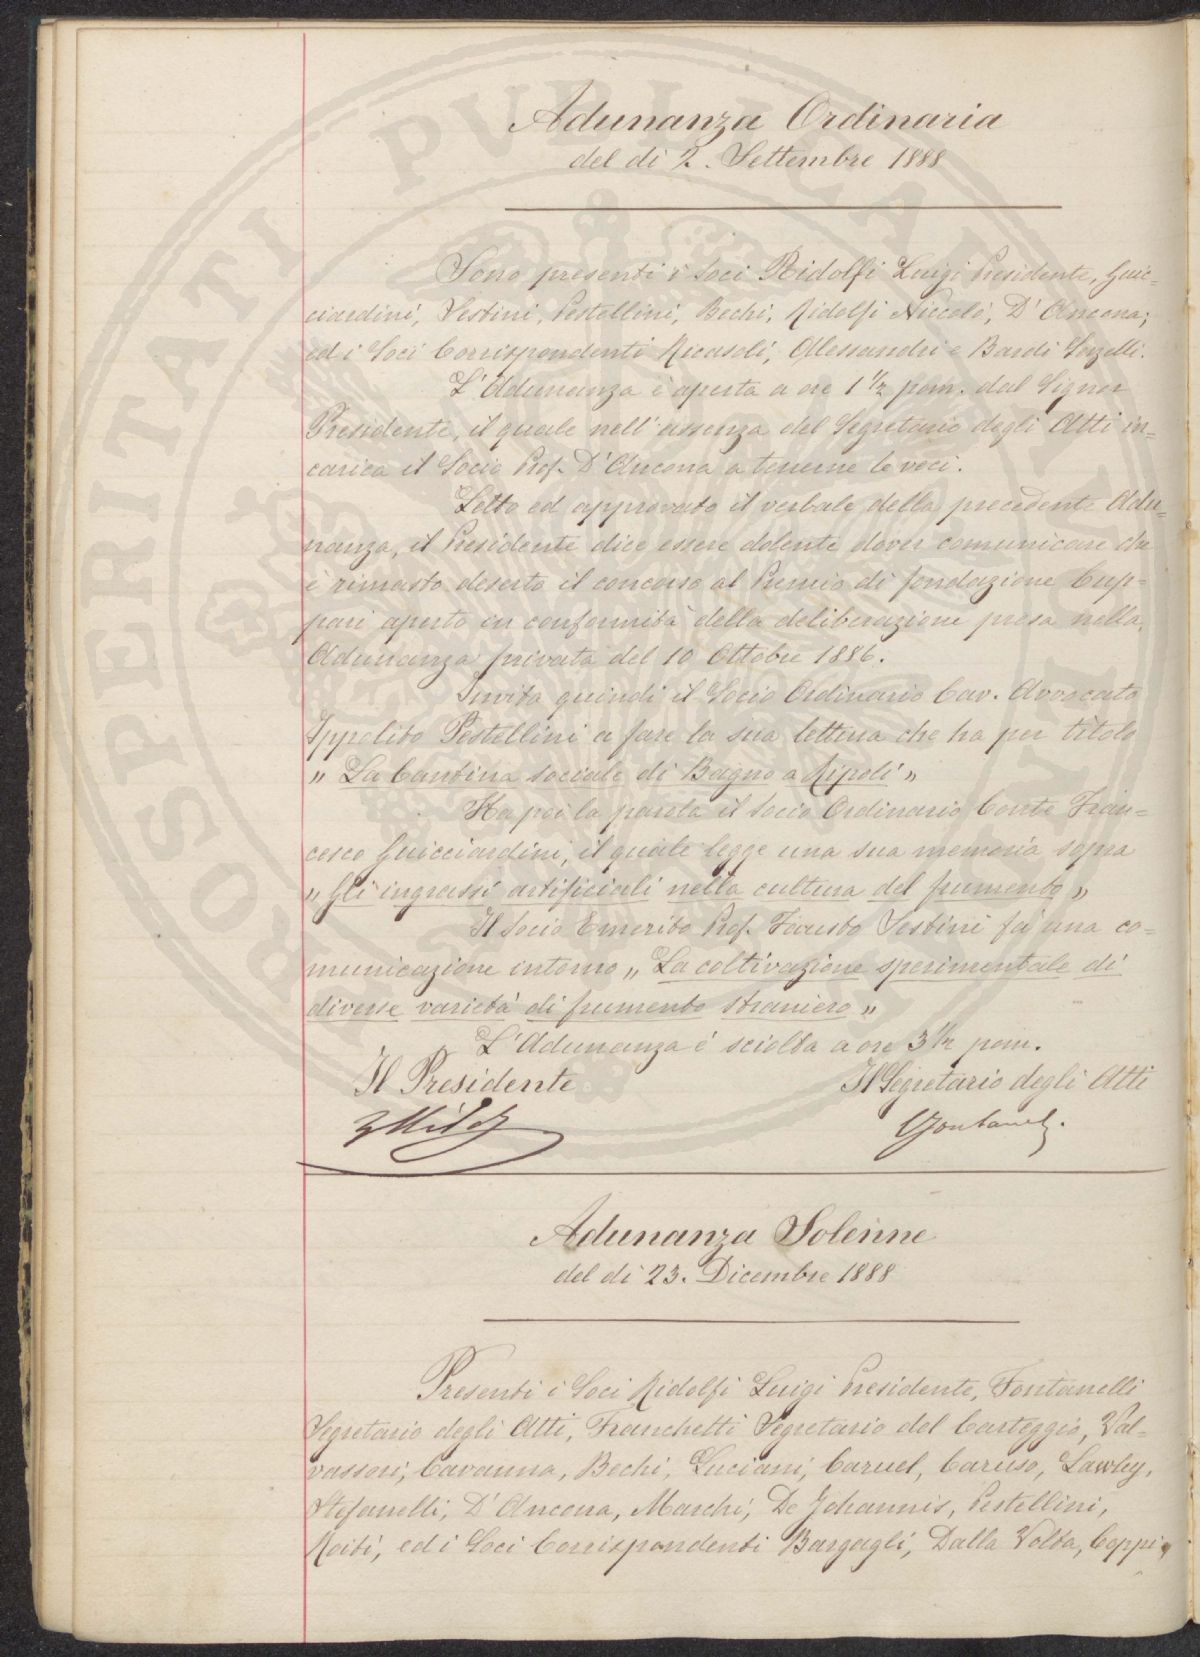 Adunanza Ordinaria
del dì 2. Settembre 1888
Sono presenti i Soci Ridolfi Luigi Presidente, Guic=
ciardini, Sestini, Pestellini, Bechi, Ridolfi Niccolò, D'Ancona;
ed i Soci Corrispondenti Ricasoli, Alessandri e Bardi Serzelli.
L'Adunanza è aperta a ore 1 1/2 pom. dal Signor
Presidente, il quale nell'assenza del Segretario degli Atti in=
carica il Socio Prof. D'Ancona a tenerne le veci.
Letto ed approvato il verbale della precedente Adu=
nanza, il Presidente dice essere dolente dover comunicare che
è rimasto deserto il concorso al Premio di fondazione Cup=
pari aperto in conformità della deliberazione presa nella
Adunanza privata del 10 Ottobre 1886.
Invita quindi il Socio Ordinario Cav. Avvocato
Ippolito Pestellini a fare la sua lettura che ha per titolo
" La Cantina sociale di Bagno a Ripoli "
Ha poi la parola il Socio Ordinario Conte Fran=
cesco Guicciardini, il quale legge una sua memoria sopra
" Gli ingrassi artificiali nella cultura del frumento "
Il Socio Emerito Prof. Fausto Sestini fa una co=
municazione intorno " La coltivazione sperimentale di
diverse varietà di frumento straniero "
L'Adunanza è sciolta a ore 3 1/2 pom.
Il Presidente Il Segretario degli Atti
Adunanza Solenne
del dì 23. Dicembre 1888
Presenti i Soci Ridolfi Luigi Presidente, Fontanelli
Segretario degli Atti, Franchetti Segretario del Carteggio, Val=
vassori, Cavanna, Bechi, Luciani, Caruel, Caruso, Lawley,
Stefanelli, D'Ancona, Marchi, De Johannis, Pestellini,
Roiti, ed i Soci Corrispondenti Bargagli, Dalla Volta, Coppi,
PROSPERITATI PVBLICAE